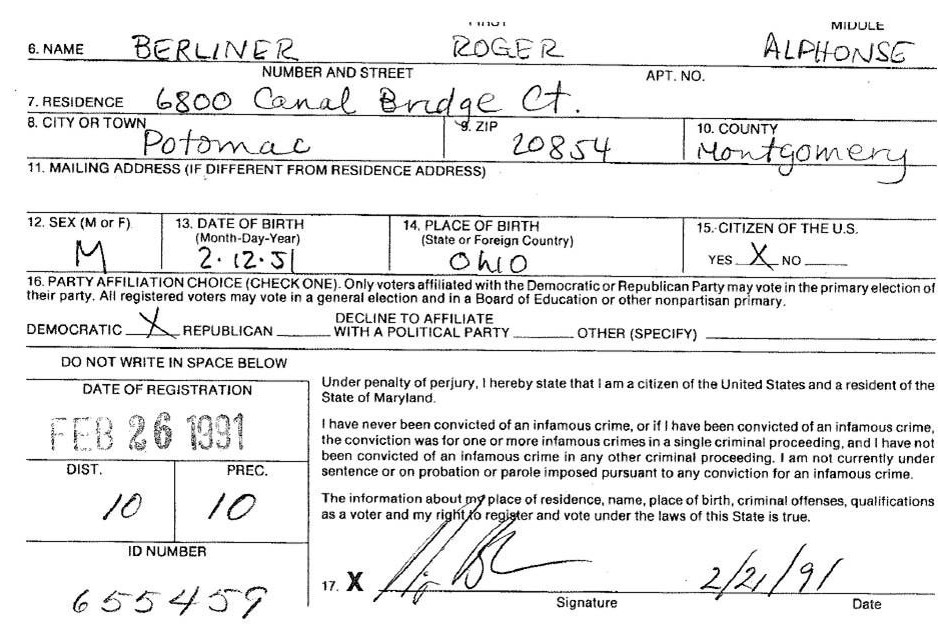 MIDDLE
6. NAME BERLINER ROGER ALPHONSE
NUMBER AND STREET APT. NO.
7. RESIDENCE 6800 Canal Bridge Ct.
8. CITY OR TOWN 9. ZIP 10. COUNTY
Potomac 20854 Montgomery
11. MAILING ADDRESS (IF DIFFERENT FROM RESIDENCE ADDRESS)
12. SEX (M or F) 13. DATE OF BIRTH 14. PLACE OF BIRTH 15. CITIZEN OF THE U.S.
(Month-Day-Year) (State or Foreign Country)
M 2.12.51 OHIO YES X NO
16. PARTY AFFILIATION CHOICE (CHECK ONE). Only voters affiliated with the Democratic or Republican Party may vote in the primary election of
their party. All registered voters may vote in a general election and in a Board of Education or other nonpartisan primary.
DECLINE TO AFFILIATE
DEMOCRATIC X REPUBLICAN WITH A POLITICAL PARTY OTHER (SPECIFY)
DO NOT WRITE IN SPACE BELOW
DATE OF REGISTRATION
FEB 26 1991
DIST. PREC.
10 10
ID NUMBER
655459
Under penalty of perjury, I hereby state that I am a citizen of the United States and a resident of the
State of Maryland.
I have never been convicted of an infamous crime, or if I have been convicted of an infamous crime,
the conviction was for one or more infamous crimes in a single criminal proceeding, and I have not
been convicted of an infamous crime in any other criminal proceeding. I am not currently under
sentence or on probation or parole imposed pursuant to any conviction for an infamous crime.
The information about my place of residence, name, place of birth, criminal offenses, qualifications
as a voter and my right to register and vote under the laws of this State is true.
17. X 2/21/91
Signature Date